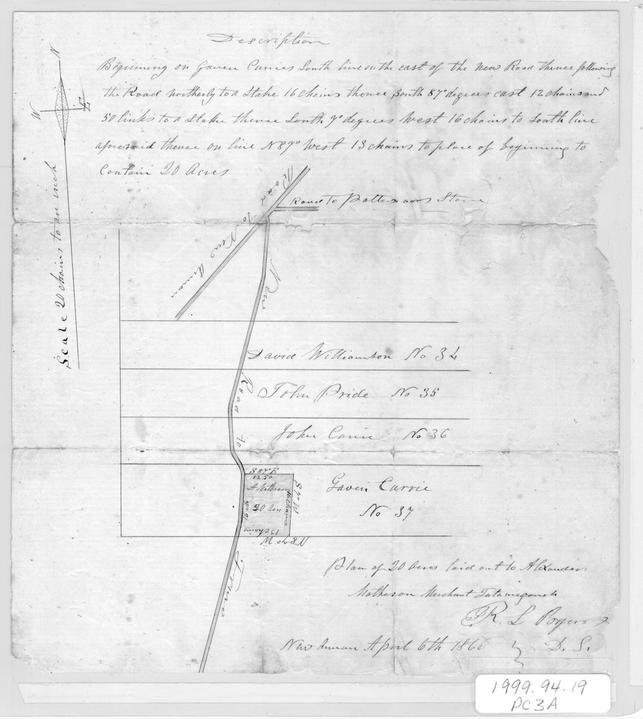 Description
Beginning on Gaven Curries South line on the east of the New Road thence following
the Road northerly to a Stake 16 chains thence South 87° degrees east 12 chains and
50 links to a Stake thence South degrees West 16 chains to South line
aforesaid thence on line N 87° West 13 chains to place of beginning to
Contain 20 Acres
N
W
Scale 20 chains to an inch
Road to New Annan
Road to Pattersons Store
New Road to
David Williamson No 34
John Pride No 35
John Currie No 36
Gaven Currie
No 37
12.50
20 Acres
13 chains
N 87° W
Plan of 20 Acres laid out to Alexander
Matheson Merchant Tatamagouche
R. L. Rogers
D. S.
New Annan April 6th
1999.94.19
PC3A